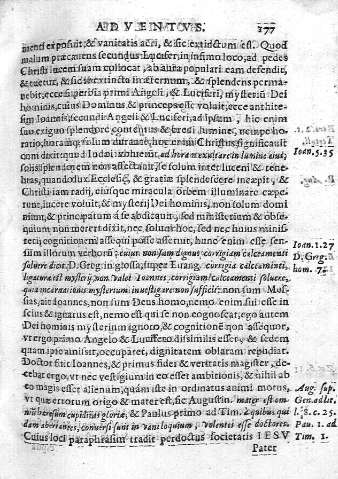 ADVENTVS. 277
menti exposuit, & vanitatis aeri, & sic extinctum est. Quod
malum præcauens secundus Lucifer, in infimo loco, ad pedes
Christi lucem suam collocat, ab aura populari eam defendit,
& tuetur, & sic inextincto in æternum, & splendens perma-
nebit, ecce superbia primi Angeli, & Luciferi, mysteriū Dei
hominis, cuius Dominus & princeps esse voluit, ecce antithe-
sim Ioannis, secundi Angeli & Luciferi, ad ipsum, hic enim
suo exiguo splendore contentus & breui lumine,
horatio, hora namque solum durauit, hoc enim Christus significauit
cum dixit quod Iudæi ad horam exultare in lumine eius,
solis splendorem non affectauit, se solum inter lucem & tene-
bras, mundo Ecclesiæ, & gratiæ splendescere incœpit, &
Christi iam radij, eiusque miracula orbem illuminare cœpe-
runt, lucere voluit, & mysterij Dei hominis, non solum domi-
nium, & principatum á se abdicauit, sed ministerium & obse-
quium non mereri dixit, nec solum hoc, sed nec huius mini-
sterij cognitionem assequi posse asserit, hunc enim esse sen-
sum illorum verborū: cuius non sum dignus corrigiam calceamenti
soluere dixit. D. Greg. in glossa, super Euang. corrigia calceamenti,
ligatura est mysterij, non valet Ioannes, corrigiam calceamenti soluere,
quia incarnationis mysterium inuestigare non sufficit: non sum Mes-
sias, ait Ioannes, non sum Deus homo, nemo enim sui esse in
scius & ignarus est, nemo est qui se non cognoscat, ego autem
Dei hominis mysterium ignoro, & cognitionē non assequor,
vt ergo primo Angelo & Lucifero dissimilis esset, & sedem
quam apostauit, occuparet, dignitatem oblatam repudiat.
Doctor fuit Ioannes, & primus fidei & veritatis magister, de-
cebat ergo, vt nec vestigium in eo esset ambitionis, & nihil ab
eo magis esset alienum, quam iste in ordinatus animi motus,
vt quæ errorum origo & mater est, sic Augustin. mater est om-
nium hæresum cupiditas gloriæ, & Paulus primo ad Tim. à quibus qui
dam aberrantes, conuersi sunt in vaniloquium, volentes esse doctores.
Cuius loci paraphrasim tradit perdoctus societatis IESV
Pater
Ioan. 5. 35
Ioan. 1. 27
D. Greg.
hom. 7.
Aug. sup.
Gen. ad lit.
l. 8. c. 25.
Pau. 1. ad
Tim. 1.